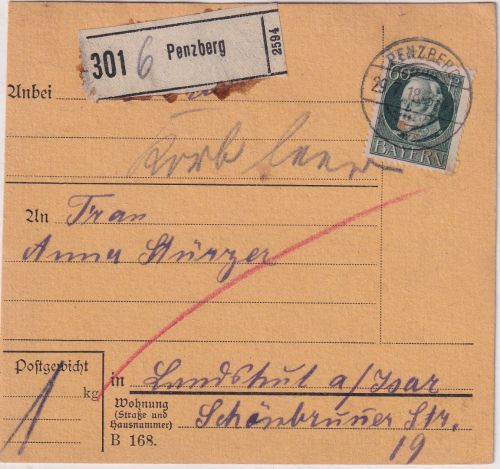 301 6 Penzberg 2594
PENZBERG
29
60
BAYERN
Anbei
Korb leer
An Frau
Anna Stürzer
Postgewicht
1 kg
in Landshut a/Isar
Wohnung
(Straße und
Hausnummer)
Schönbrunner Str.
19
B 168.